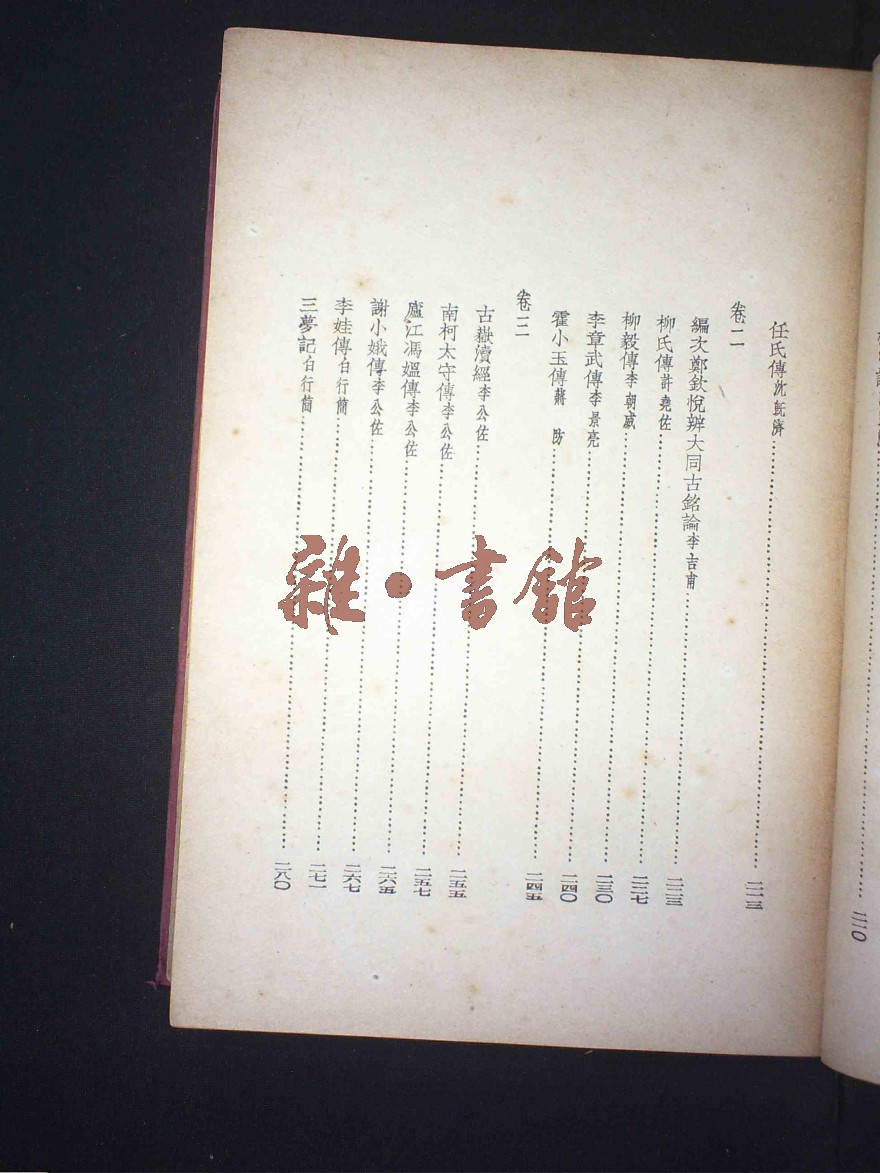 二一〇
任氏傳沈既濟……二一三
卷二
編次鄭欽悅辨大同古銘論李吉甫……二二三
柳氏傳許堯佐……二二七
柳毅傳李朝威……二三〇
李章武傳李景亮……二四〇
霍小玉傳蔣防……二四五
卷三
古嶽瀆經李公佐……二五五
南柯太守傳李公佐……二五七
廬江馮媼傳李公佐……二六五
謝小娥傳李公佐……二六七
李娃傳白行簡……二七一
三夢記白行簡……二八〇
雜·書館